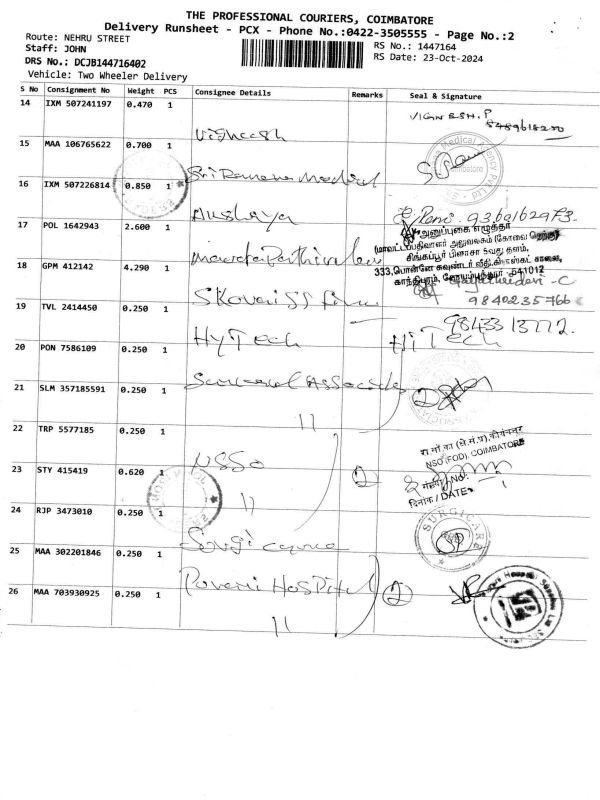 THE PROFESSIONAL COURIERS, COIMBATORE
Delivery Runsheet - PCX - Phone No.:0422-3505555 - Page No.:2
Route: NEHRU STREET
Staff: JOHN
RS No.: 1447164
DRS No.: DCJB144716402
RS Date: 23-Oct-2024
Vehicle: Two Wheeler Delivery
S No Consignment No Weight PCS Consignee Details Remarks Seal & Signature
14 IXM 507241197 0.470 1 Vighnesh VIGNESH.P
15 MAA 106765622 0.700 1 Sri Ramana Medical
Coimbatore
16 IXM 507226814 0.850 1 Akshaya
17 POL 1642943 2.600 1
அனுப்புகை எழுத்தர்
சிங்கப்பூர் பிளாசா 5வது தளம்,
காந்திபுரம், கோயம்புத்தூர் - 641012
18 GPM 412142 4.290 1
9840235766
19 TVL 2414450 0.250 1 HyTech HiTech
9843313772
20 PON 7586109 0.250 1
21 SLM 357185591 0.250 1 11 2
22 TRP 5577185 0.250 1 NSSO
NSO (FOD), COIMBATORE
23 STY 415419 0.620 1 11 2
दिनांक / DATE
24 RJP 3473010 0.250 1 Surgicare SURGICARE
25 MAA 302201846 0.250 1 Pavani Hospital 2
26 MAA 703930925 0.250 1 11